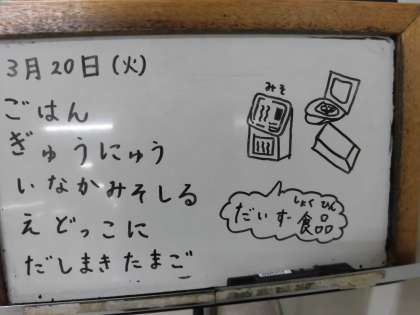 3月20日(火)
ごはん
ぎゅうにゅう
いなかみそしる
えどっこに
だしまきたまご
みそ
しょくひん
だいず食品